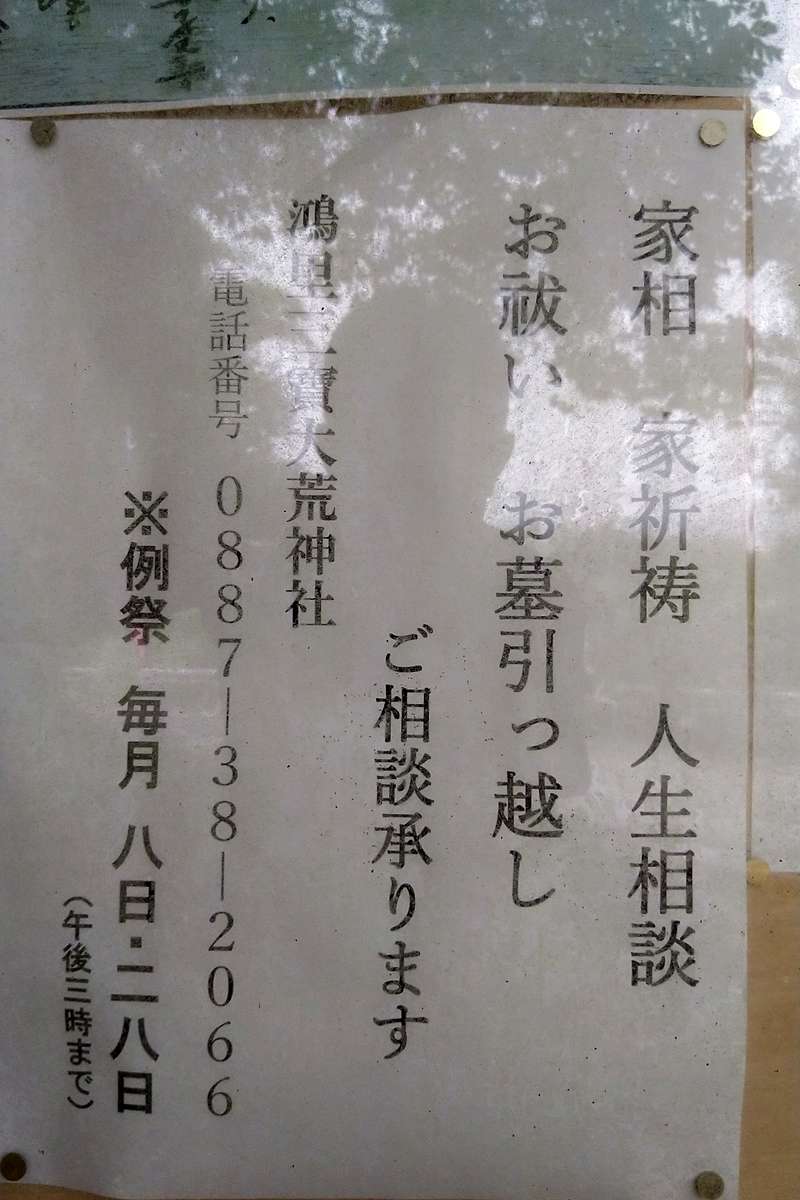 家相　家祈祷　人生相談
お祓い　お墓引っ越し
ご相談承ります
鴻里三寶大荒神社
電話番号　0887―38―2066
※例祭　毎月　八日・二八日
（午後三時まで）